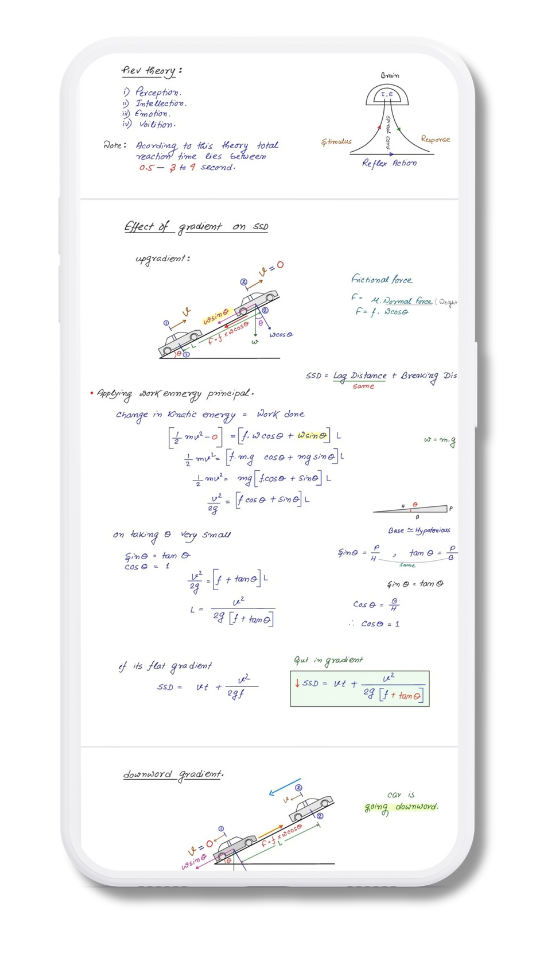 Piev theory :
i) Perception.
ii) Intellection.
iii) Emotion.
iv) Volition.
Note: Acording to this theory total
reaction time lies between
0.5 – 3 to 4 second.
Brain
I, E
Spinal Cord
Stimulus
Response
Reflex Action
Effect of gradient on SSD
upgradient :
v = 0
②
v
①
wsinθ
θ
wcosθ
w
F = f × wcosθ
L
θ
①
Frictional force
F = μ. Normal force
F = f. wcosθ
SSD = Lag Distance + Breaking Dis
same
• Applying work ennergy principal.
Change in Kinetic energy = Work done
[1/2 mv² - 0] = [f. w cosθ + wsinθ] L
w = m.g
1/2 mv² = [f.m.g cosθ + mg sinθ] L
1/2 mv² = mg [f.cosθ + sinθ] L
v²/2g = [f cosθ + sinθ] L
H θ P
B
Base ≃ Hypotenious
on taking θ very small
sinθ = tanθ
cosθ = 1
sinθ = P/H , tanθ = P/B
same
v²/2g = [f + tanθ] L
sinθ = tanθ
L = v² / 2g [f + tanθ]
cosθ = B/H
∴ cosθ = 1
if its flat gradient
SSD = vt + v²/2gf
But in gradient
↓ SSD = vt + v² / 2g [f + tanθ]
downword gradient.
car is
going downword.
②
v
②
v = 0
①
F = f × wcosθ
L
wsinθ
θ